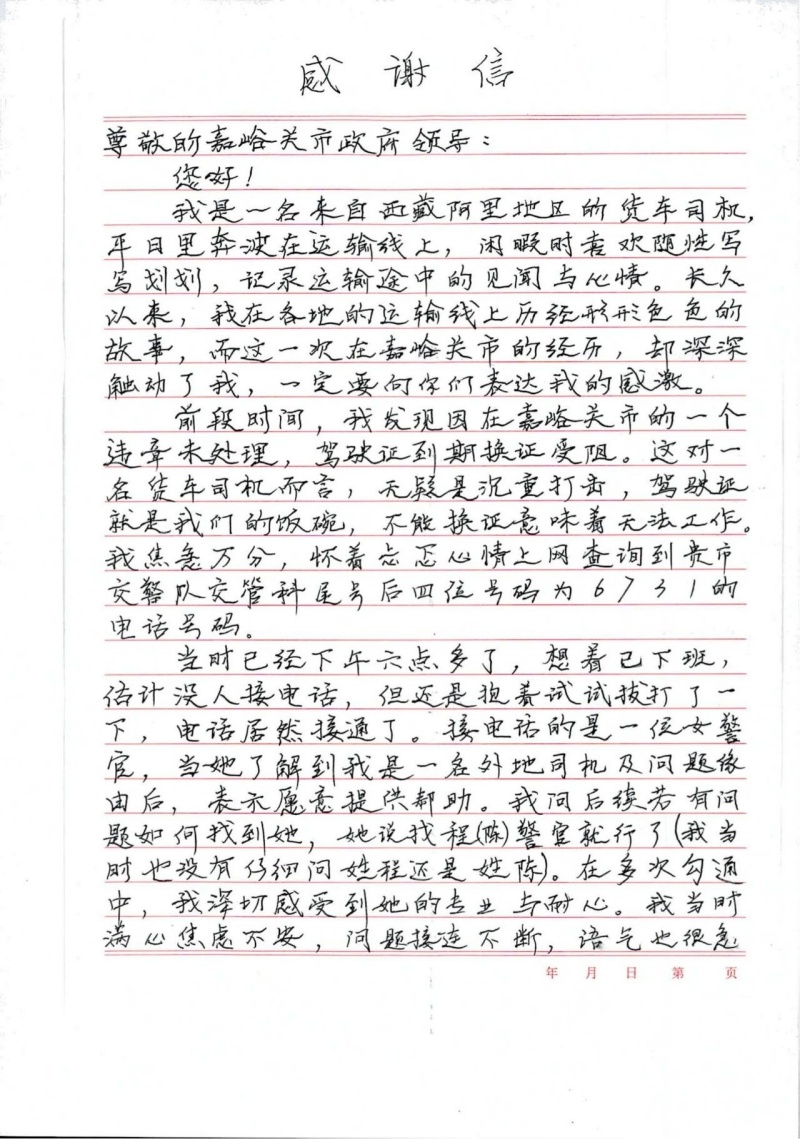 感谢信
尊敬的嘉峪关市政府领导：
您好！
我是一名来自西藏阿里地区的货车司机，
平日里奔波在运输线上，闲暇时喜欢随性写
写划划，记录运输途中的见闻与心情。长久
以来，我在各地的运输线上历经形形色色的
故事，而这一次在嘉峪关市的经历，却深深
触动了我，一定要向你们表达我的感激。
前段时间，我发现因在嘉峪关市的一个
违章未处理，驾驶证到期换证受阻。这对一
名货车司机而言，无疑是沉重打击，驾驶证
就是我们的饭碗，不能换证意味着无法工作。
我焦急万分，怀着忐忑心情上网查询到贵市
交警队交管科尾号后四位号码为6731的
电话号码。
当时已经下午六点多了，想着已下班，
估计没人接电话，但还是抱着试试拔打了一
下，电话居然接通了。接电话的是一位女警
官，当她了解到我是一名外地司机及问题缘
由后，表示愿意提供帮助。我问后续若有问
题如何找到她，她说找程(陈)警官就行了(我当
时也没有仔细问姓程还是姓陈)。在多次勾通
中，我深切感受到她的专业与耐心。我当时
满心焦虑不安，问题接连不断，语气也很急
年 月 日 第 页